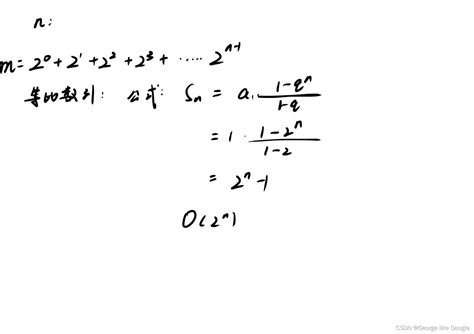 n:
m=2⁰+2¹+2²+2³+·····2ⁿ⁻¹
等比数列: 公式: Sₙ = a₁·(1-qⁿ)/(1-q)
= 1·(1-2ⁿ)/(1-2)
= 2ⁿ-1
O(2ⁿ)
CSDN @Seouge like Google